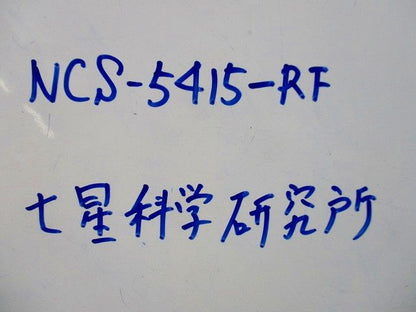 NCS-5415-RF
七星科学研究所